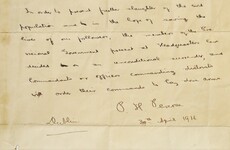 In order to prevent further slaughter of the civil
population and in the hope of saving the
lives of our followers, the members of the Pro-
visional Government present at Headquarters have
decided on an unconditional surrender, and
Commandants or officers commanding districts
will order their commands to lay down arms.
P. H. Pearse
Dublin 30th April 1916